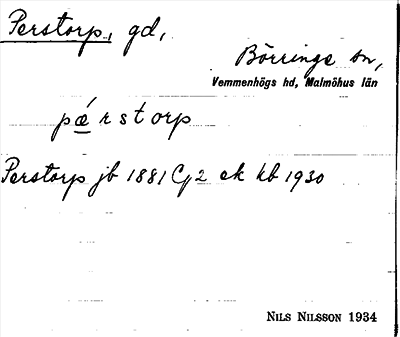 Perstorp, gd,
Börringe sn,
Vemmenhögs hd, Malmöhus län
pǽrstorp
Perstorp jb 1881 Cg2 ek kb 1930
NILS NILSSON 1934